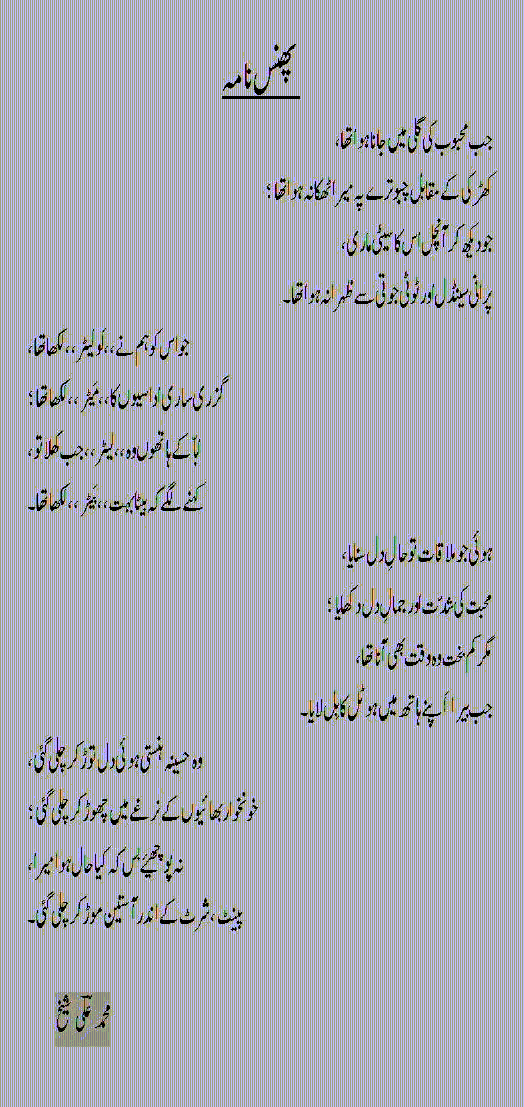 پھنس نامہ
جب محبوب کی گلی میں جانا ہوا تھا،
کھڑکی کے مقابل چبوترے پہ میرا ٹھکانہ ہوا تھا؛
جو دیکھ کر آنچل اس کا سیٹی ماری،
پرانی سینڈل اور ٹوٹی جوتی سے ظہرانہ ہوا تھا۔
جو اس کو ہم نے ،،لَو لیٹر،، لکھا تھا،
گزری ساری اُداسیوں کا ،،مَیٹر،، لکھا تھا؛
ابّا کے ہاتھوں وہ ،،لیٹر،، جب کھلا تو،
کہنے لگے کہ بیٹا بہت ،،بَیٹر،، لکھا تھا۔
ہوئی جو ملاقات تو حالِ دل سنایا،
محبت کی شدّت اور جمالِ دل دکھلایا؛
مگر کم بخت وہ وقت بھی آنا تھا،
جب بیرا اَپنے ہاتھ میں ہوٹل کا بِل لایا۔
وہ حسینہ ہنستی ہوئی دل توڑ کر چلی گئی،
خونخوار بھائیوں کے نرغے میں چھوڑ کر چلی گئی؛
نہ پوچھیٔے بس کہ کیا حال ہوا میرا،
پینٹ، شرٹ کے اندر آستین موڑ کر چلی گئی۔
محمد علیؔ شیخ